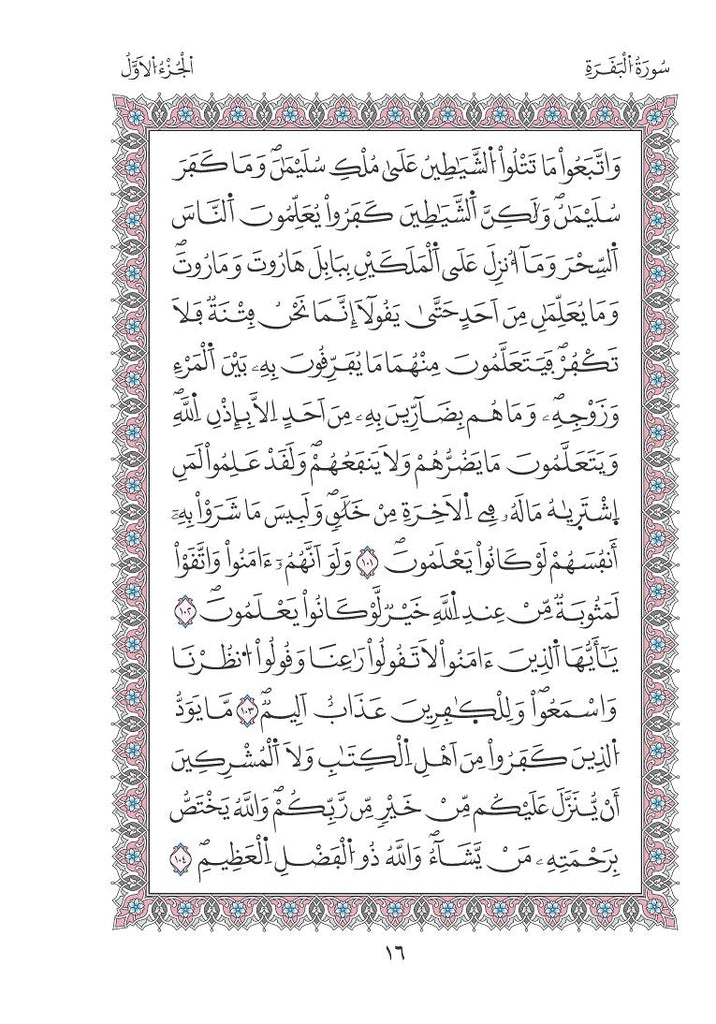 سُورَةُ الْبَقَرَةِ
الْجُزْءُ الْأَوَّلُ
وَاتَّبَعُواْ مَا تَتْلُواْ الشَّيَٰطِينُ عَلَىٰ مُلْكِ سُلَيْمَٰنَۖ وَمَا كَفَرَ
سُلَيْمَٰنُۖ وَلَٰكِنَّ الشَّيَٰطِينَ كَفَرُواْ يُعَلِّمُونَ النَّاسَ
السِّحْرَ وَمَآ أُنزِلَ عَلَى الْمَلَكَيْنِ بِبَابِلَ هَارُوتَ وَمَارُوتَۖ
وَمَا يُعَلِّمَٰنِ مِنَ اَحَدٍ حَتَّىٰ يَقُولَآ إِنَّمَا نَحْنُ فِتْنَةٌ فَلَا
تَكْفُرْۖ فَيَتَعَلَّمُونَ مِنْهُمَا مَا يُفَرِّقُونَ بِهِۦ بَيْنَ الْمَرْءِ
وَزَوْجِهِۖۦ وَمَا هُم بِضَآرِّينَ بِهِۦ مِنَ اَحَدٍ اِلَّا بِإِذْنِ اللَّهِۖ
وَيَتَعَلَّمُونَ مَا يَضُرُّهُمْ وَلَا يَنفَعُهُمْۖ وَلَقَدْ عَلِمُواْ لَمَنِ
اِشْتَرَيٰهُ مَا لَهُۥ فِے اِلَاخِرَةِ مِنْ خَلَٰقٍۖ وَلَبِيسَ مَا شَرَوْاْ بِهِۦٓ
أَنفُسَهُمْ لَوْ كَانُواْ يَعْلَمُونَۖ ١٠١ وَلَوَ اَنَّهُمُۥٓ ءَامَنُواْ وَاتَّقَوْاْ
لَمَثُوبَةٌ مِّنْ عِندِ اِللَّهِ خَيْرٌ لَّوْ كَانُواْ يَعْلَمُونَۖ ١٠٢
يَٰٓأَيُّهَا اَلذِينَ ءَامَنُواْ لَا تَقُولُواْ رَٰعِنَا وَقُولُواْ اُنظُرْنَا
وَاسْمَعُواْۖ وَلِلْكٰ۪فِرِينَ عَذَابٌ اَلِيمٌۖ ١٠٣ مَّا يَوَدُّ
اُلذِينَ كَفَرُواْ مِنَ اَهْلِ اِلْكِتَٰبِ وَلَا اَلْمُشْرِكِينَ
أَنْ يُّنَزَّلَ عَلَيْكُم مِّنْ خَيْرٍ مِّن رَّبِّكُمْۖ وَاللَّهُ يَخْتَصُّ
بِرَحْمَتِهِۦ مَنْ يَّشَآءُۖ وَاللَّهُ ذُو اُلْفَضْلِ اِلْعَظِيمِۖ ١٠٤
١٦